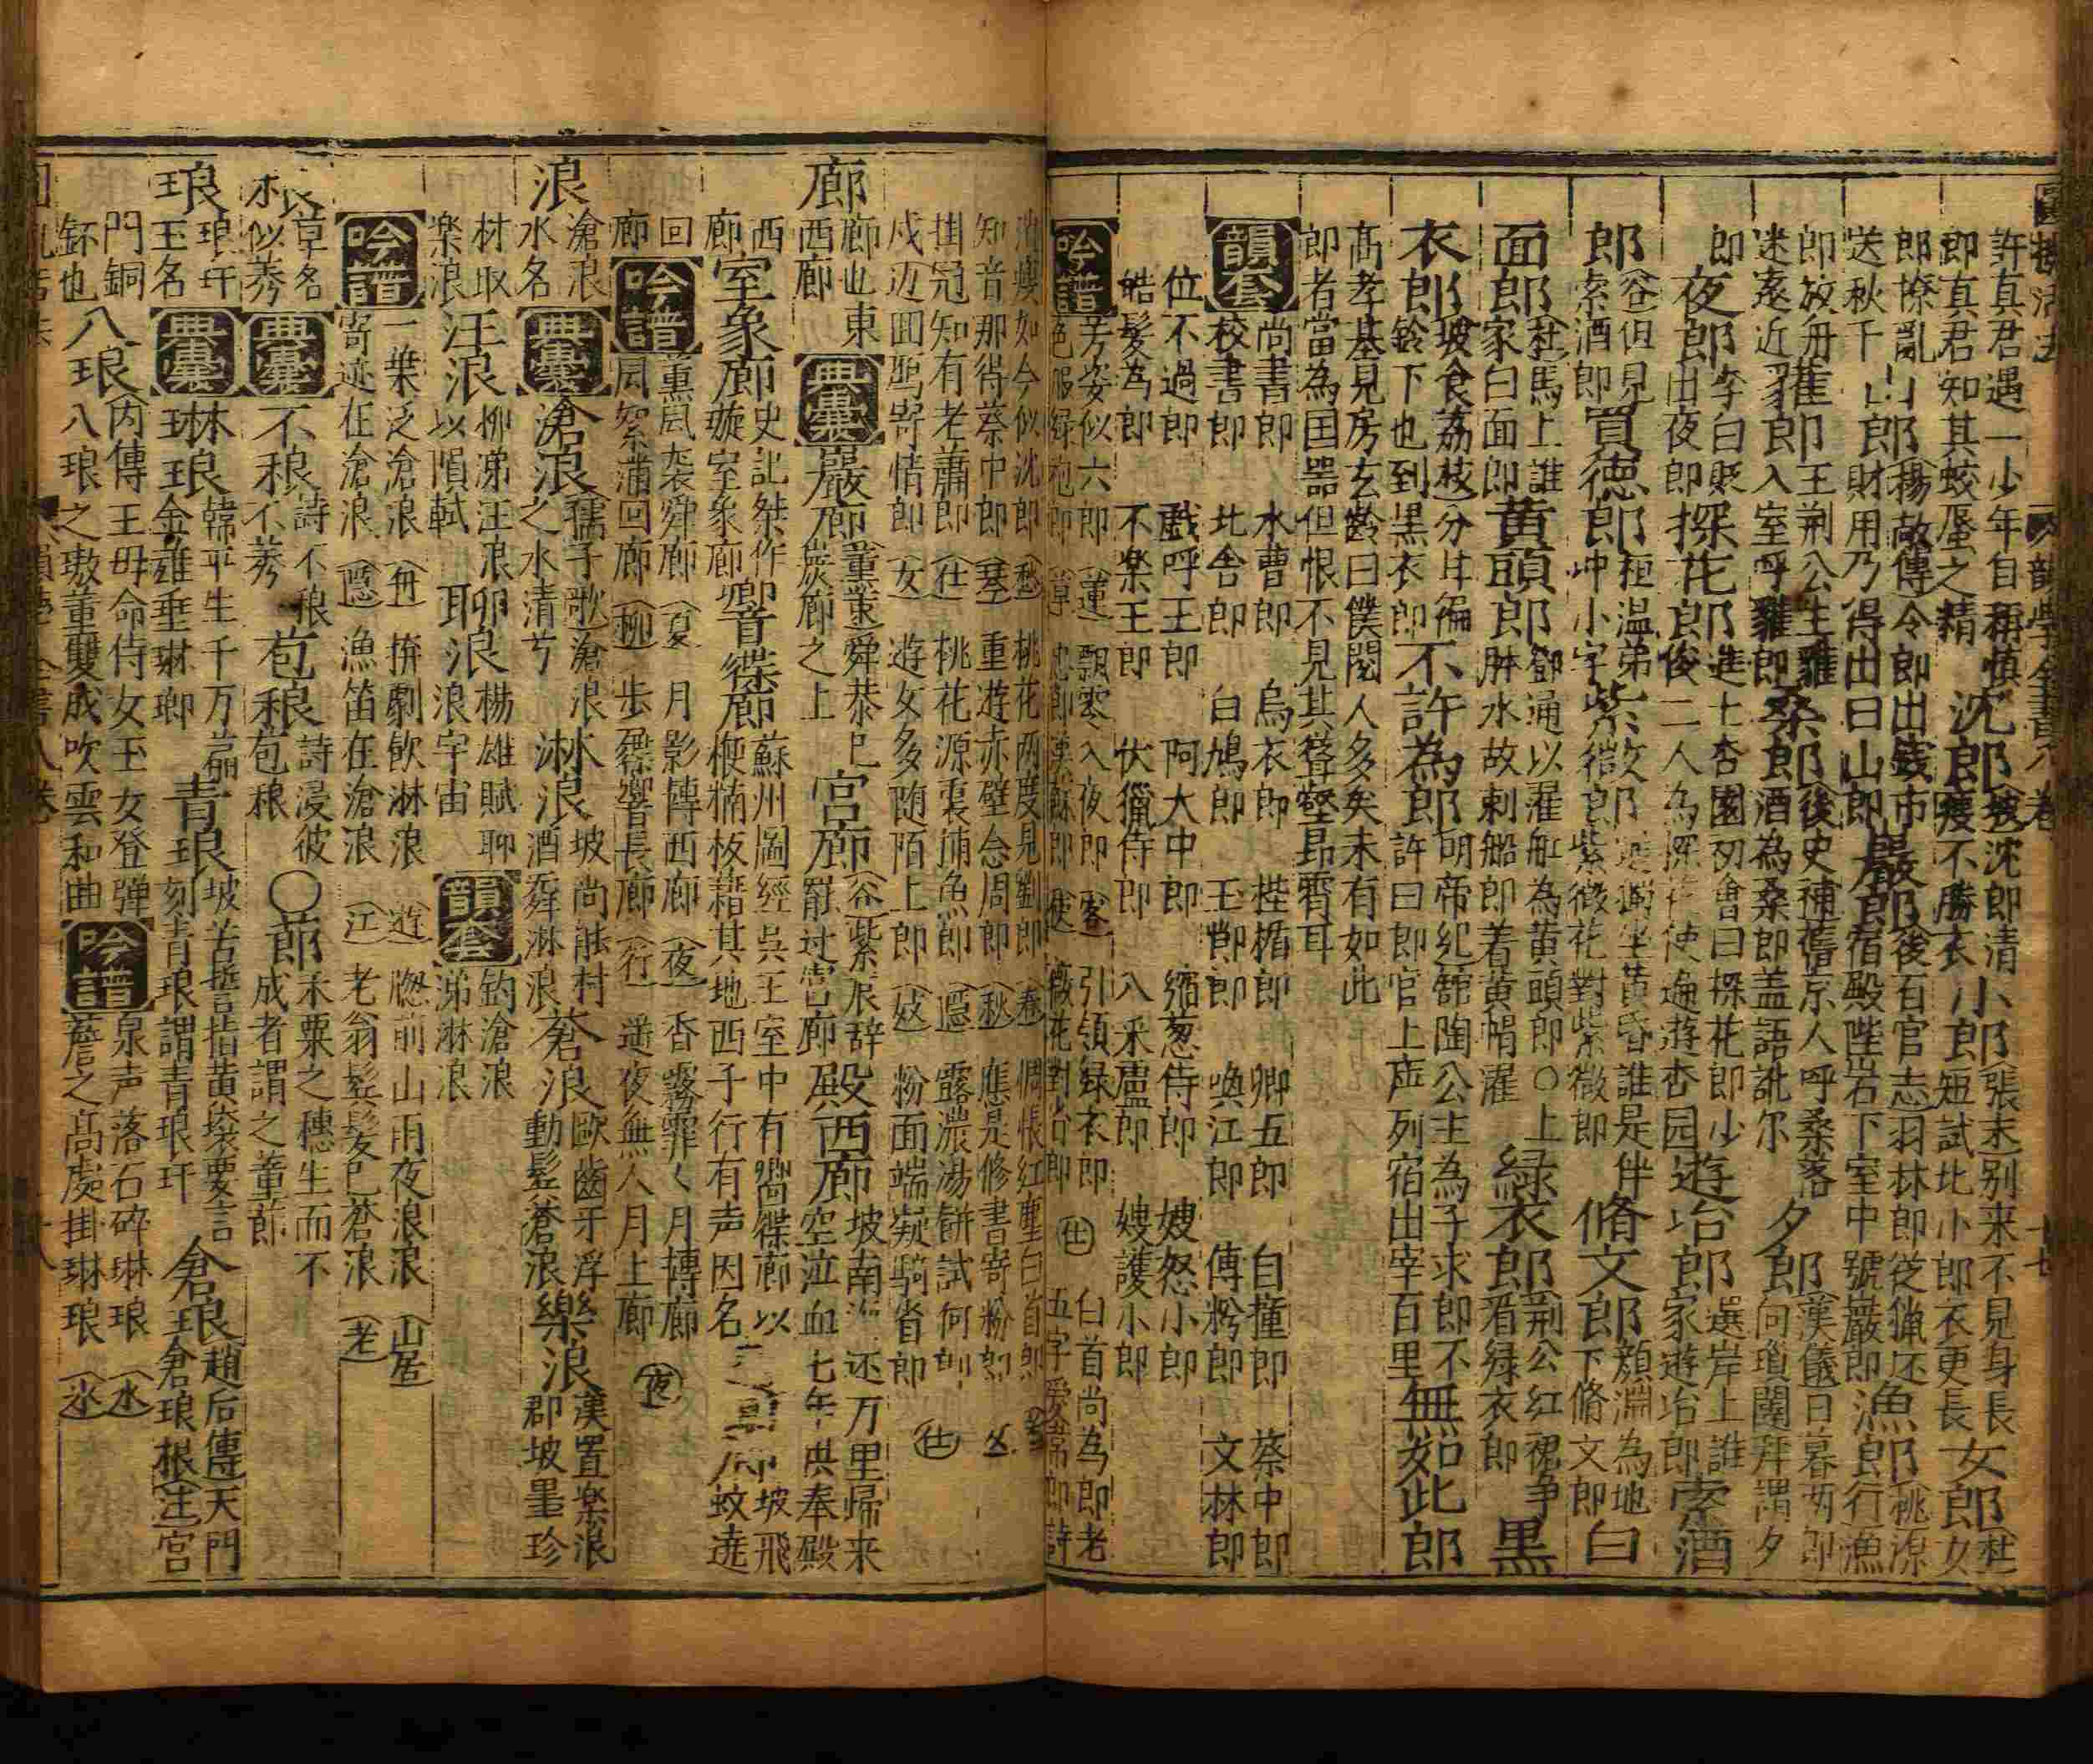 許真君遇一少年自稱慎
即真君知其蛟蜃之精
沈郎
坡沈郎清
瘦不勝衣
小郎
張末別来不見身長
短試比小郎衣更長
女郎
杜
女
郎撩亂
送秋千
山郎
楊敞傳令郎出錢市
財用乃得出曰山郎
嚴郎
後百官志羽林郎従猟还
宿殿陛岩下室中號嚴郎
漁郎
桃源
行漁
郎放舟
迷遠近
羅郎
王荆公生羅
入室呼羅郎
桑郎
後史補舊京人呼桑落
酒為桑郎盖語訛尔
夕郎
漢儀曰暮两郎
向瑣闥拜謂夕
郎
夜郎
李白貶
出夜郎
探花郎
進士杏園初會曰探花郎少
俊二人為探花使遍遊杏园
遊冶郎
選岸上誰
家遊冶郎
索酒
郎
谷但見
索酒郎
買德郎
桓温弟
冲小字
紫微郎
坐黄昏誰是伴
紫微花對紫微郎
脩文郎
顔淵為地
下脩文郎
白
面郎
杜馬上誰
家白面郎
黄頭郎
鄧通以濯舡為黄頭郎〇上
肰水故刺船郎着黄帽濯
緑衣郎
荆公红裙争
看緑衣郎
黒
衣郎
坡食荔枝分甘徧
鈴下也到黒衣郎
不許為郎
明帝紀舘陶公主為子求郎不
許曰郎官上应列宿出宰百里
無如此郎
高孝基見房玄齡曰僕閲人多矣未有如此
郎者當為国噐但恨不見其聳壑昻霄耳
韻套
尚書郎 水曹郎 烏衣郎 桂楯郎 卿五郎 自撞郎 蔡中郎
校書郎 北舎郎 白鳩郎 玉郎郎 喚江郎 傅粉郎 文林郎
位不過郎 戲呼王郎 阿大中郎 縮葱侍郎 嫂怒小郎
皓髮為郎 不楽王郎 伏獵侍郎 八采盧郎 嫂護小郎
吟譜
芳姿似六郎 蓮 飄零入夜郎 客 引領緑衣郎 仕 白首尚為郎 老
知音那得蔡中郎 塞 重遊赤壁念周郎 秋 應是修書寄粉郎
掛冠知有老蕭郎 仕 桃花源裏捕魚郎 隠 露濃湯餅試何郎
戍辺囬鴈寄情郎 女 遊女多随陌上郎 妓 粉面端凝騎省郎 仕
廊
廊也東
西廊
典彙
巖廊
董策舜恭巳
炭廊之上
宮廊
谷紫宸辞
罷过宮廊
殿西廊
坡南迁还万里帰来
空泣血七年供奉殿
西
廊
室象廊
史記桀作
璇室象廊
響屧廊
蘇州啚經呉王室中有響屧廊以
楩楠板藉其地西子行有声因名
坡飛
蚊遶
回
廊
吟譜
薰風裊舜廊 夏 月影傳西廊 夜 香霧霏〻月轉廊 夜
風縈蒲回廊 柳 步屧響長廊 行 遥夜無人月上廊
浪
滄浪
水名
典彙
滄浪
孺子歌滄浪
之水清兮
淋浪
坡尚能村
酒舞淋浪
蒼浪
歐齒牙浮
動髪蒼浪
樂浪
漢置楽浪
郡坡墨珍
材取
楽浪
汪浪
柳涕汪浪
以隕軾
聊浪
楊雄賦聊
浪宇宙
韻套
釣滄浪
涕淋浪
吟譜
一葉泛滄浪 舟 拚劇飲淋浪 遊 牕前山雨夜浪浪 山居
寄迹在滄浪 隠 漁笛在滄浪 江 老翁髩髮已蒼浪 老
稂
草名
似莠
典彙
不稂
詩不稂
不莠
苞稂
詩浸彼
苞稂
〇
蓈
禾粟之穗生而不
成者謂之董蓈
琅
琅玕
玉名
典彙
琳琅
韓平生千万萹
金薤垂琳瑯
青琅
坡苦誓指黄㙡要言
刻青琅謂青琅玕
倉琅
趙后傳天門
倉琅根注宮
門銅
鈈也
八琅
内傳王母命侍女玉女登弹
八琅之璈董雙成吹雲和曲
吟譜
泉声落石碎琳琅 水
簷之高處掛琳琅 氷